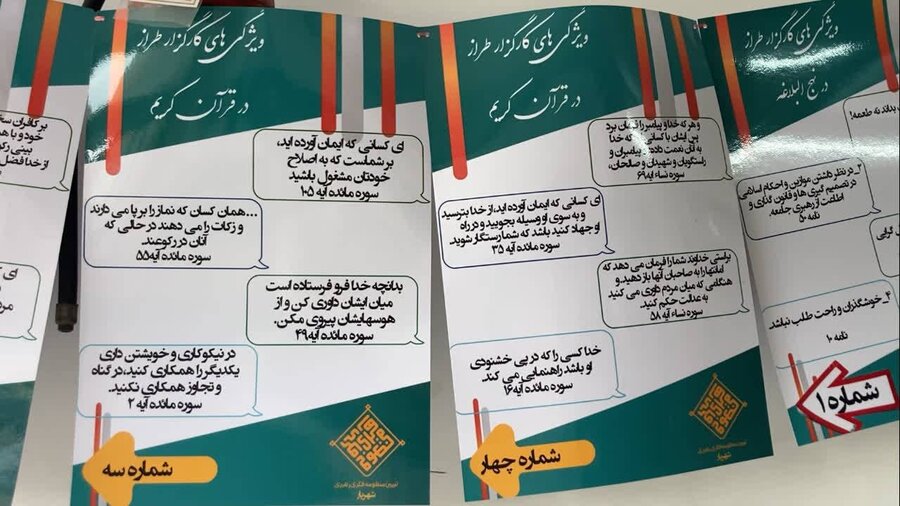 ویژگی های کارگزار طراز
در نهج البلاغه
بداند نه طعمه!
۲_ در نظر داشتن موازین و احکام اسلامی
در تصمیم گیری ها و قانون گذاری و
اطاعت از رهبری جامعه.
نامه ۵۰
گرایی
۴_ خوشگذران و راحت طلب نباشد.
نامه ۱۰
شماره ۱
ویژگی های کارگزار طراز
در قرآن کریم
و هر که خدا و پیامبر را فرمان برد
پس ایشان با کسانی که خدا
به آنان نعمت داده پیامبران و
راستگویان و شهیدان و صالحان،
سوره نساء آیه۶۹
ای کسانی که ایمان آورده اید،از خدا بترسید
و به سوی او وسیله بجویید و در راه
او جهاد کنید باشد که شما رستگار شوید.
سوره مائده آیه ۳۵
براستی خداوند شما را فرمان می دهد که
امانتها را به صاحبان آنها باز دهید،و
هنگامی که میان مردم داوری می کنید
به عدالت حکم کنید.
سوره نساء آیه ۵۸
خدا کسی را که در پی خشنودی
او باشد راهنمایی می کند.
سوره مائده آیه۱۶
شماره چهار
تبیین منظومه فکری رهبری
شهریار
ویژگی های کارگزار طراز
در قرآن کریم
ای کسانی که ایمان آورده اید،
بر شماست که به اصلاح
خودتان مشغول باشید
سوره مائده آیه ۱۰۵
...همان کسان که نماز را بر پا می دارند
و زکات را می دهند در حالی که
آنان در رکوعند.
سوره مائده آیه۵۵
بدانچه خدا فرو فرستاده است
میان ایشان داوری کن و از
هوسهایشان پیروی مکن.
سوره مائده آیه۴۹
در نیکوکاری و خویشتن داری
یکدیگر را همکاری کنید،در گناه
و تجاوز همکاری نکنید.
سوره مائده آیه ۲
شماره سه
تبیین منظومه فکری رهبری
شهریار
بر کافران
خود و با
از خدا فضل
ای